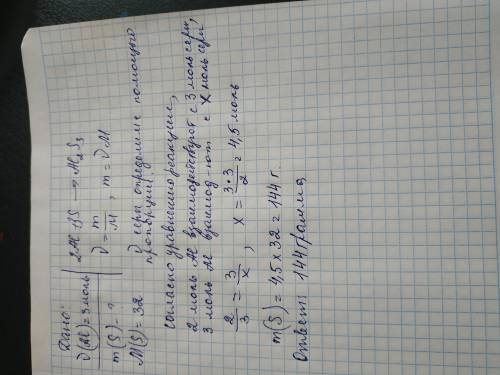 Дано:
ν(Al) = 3 моль
m(S) - ?
M(S) = 32
2Al + 3S → Al₂S₃
ν = m/M , m = νM
ν серы определим с помощью
пропорции:
согласно уравнению реакции,
2 моль Al взаимодействуют с 3 моль серы,
3 моль Al взаимод-ют с x моль серы
2/3 = 3/x , x = 3*3/2 = 4,5 моль
m(S) = 4,5 x 32 = 144 г.
Ответ: 144 грамма